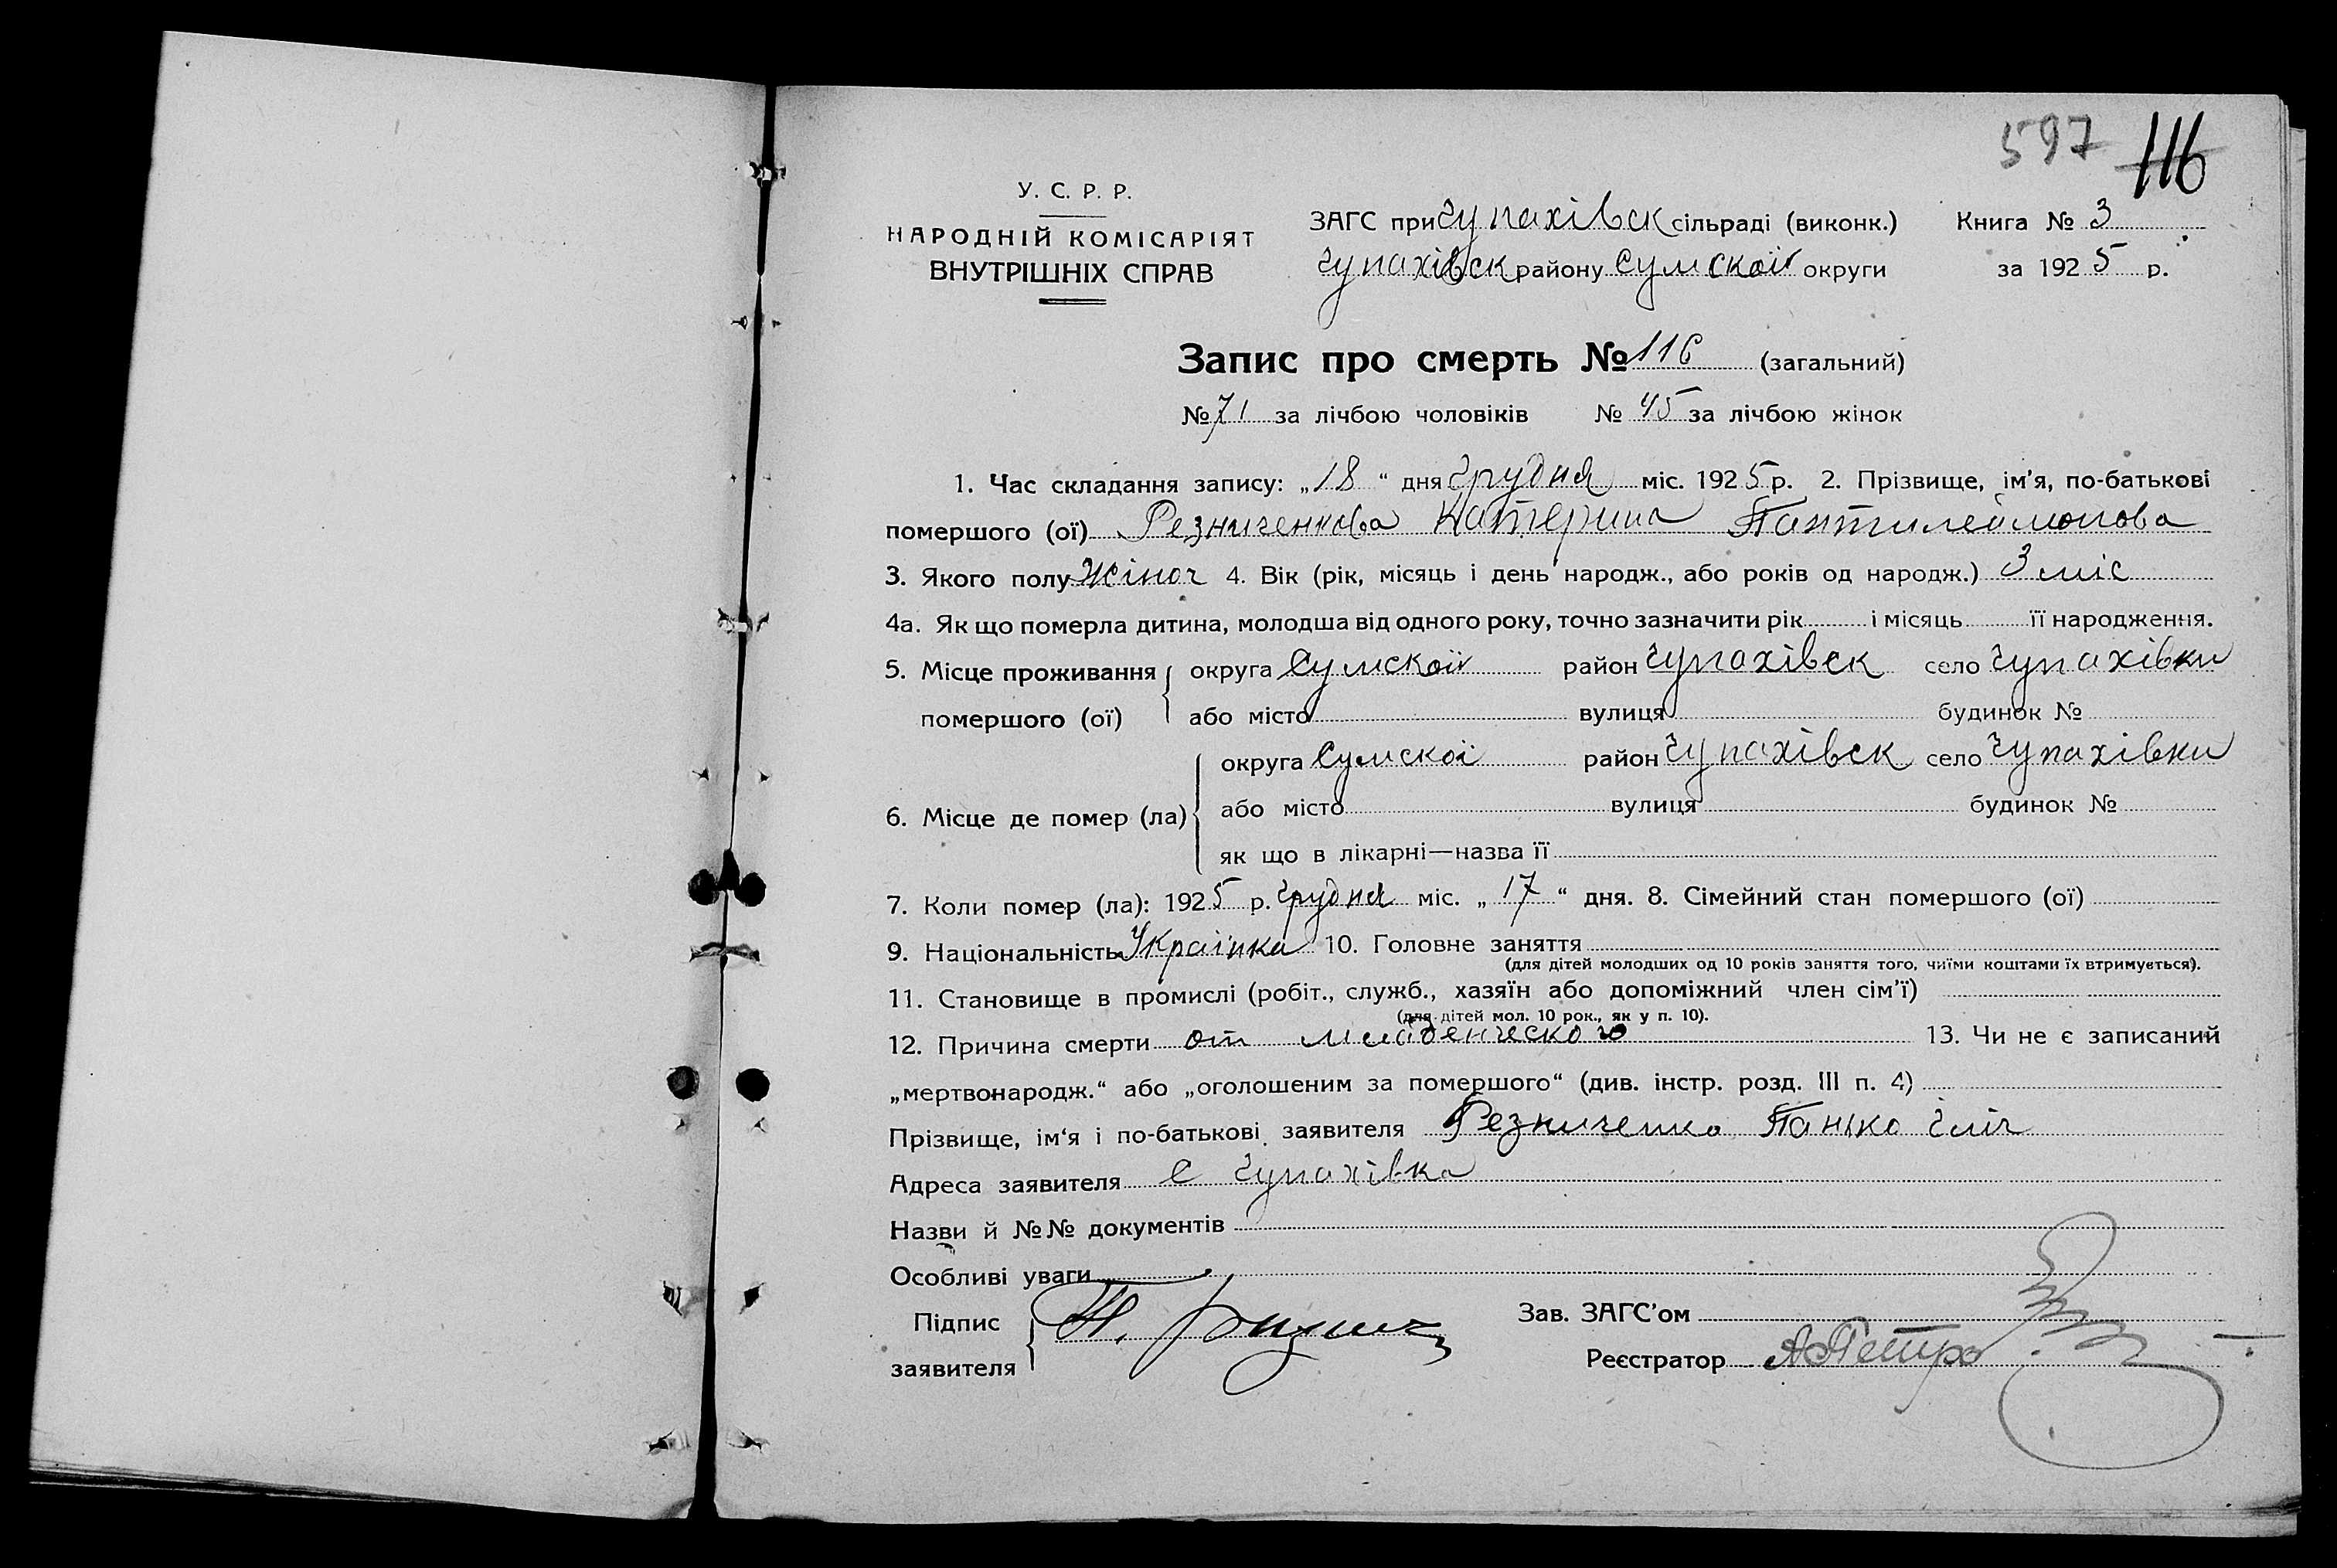 597 116
У. С. Р. Р.
НАРОДНІЙ КОМІСАРІЯТ
ВНУТРІШНІХ СПРАВ
ЗАГС при Чупахівск сільраді (виконк.) Книга № 3
Чупахівск району Сумской округи за 1925 р.
Запис про смерть № 116 (загальний)
№ 71 за лічбою чоловіків № 45 за лічбою жінок
1. Час складання запису: „18“ дня Грудня міс. 1925 р. 2. Прізвище, ім’я, по-батькові
помершого (ої) Резниченкова Катерина Пантилеймонова
3. Якого полу Жіноч 4. Вік (рік, місяць і день народж., або років од народж.) 3 міс
4а. Як що померла дитина, молодша від одного року, точно зазначити рік і місяць її народження.
5. Місце проживання помершого (ої) округа Сумской район Чупахівск село Чупахівки
або місто вулиця будинок №
6. Місце де помер (ла) округа Сумскої район Чупахівск село Чупахівки
або місто вулиця будинок №
як що в лікарні—назва її
7. Коли помер (ла): 1925 р. Грудня міс. „17“ дня. 8. Сімейний стан помершого (ої)
9. Національність Українка 10. Головне заняття
(для дітей молодших од 10 років заняття того, чиїми коштами їх втримується).
11. Становище в промислі (робіт., служб., хазяїн або допоміжний член сім’ї)
(для дітей мол. 10 рок., як у п. 10).
12. Причина смерти от младенческого 13. Чи не є записаний
„мертвонародж.“ або „оголошеним за помершого“ (див. інстр. розд. III п. 4)
Прізвище, ім‘я і по-батькові заявителя Резниченко Панько Ілліч
Адреса заявителя С Чупахівка
Назви й №№ документів
Особливі уваги
Підпис заявителя П.
Зав. ЗАГС’ом
Реєстратор